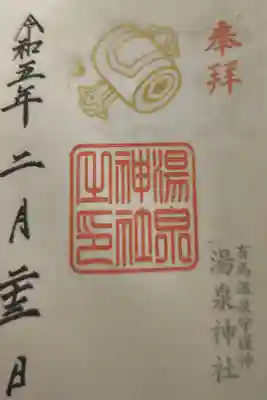 奉拝
有馬温泉守護神
湯泉神社
湯泉神社之印
令和五年二月二十三日